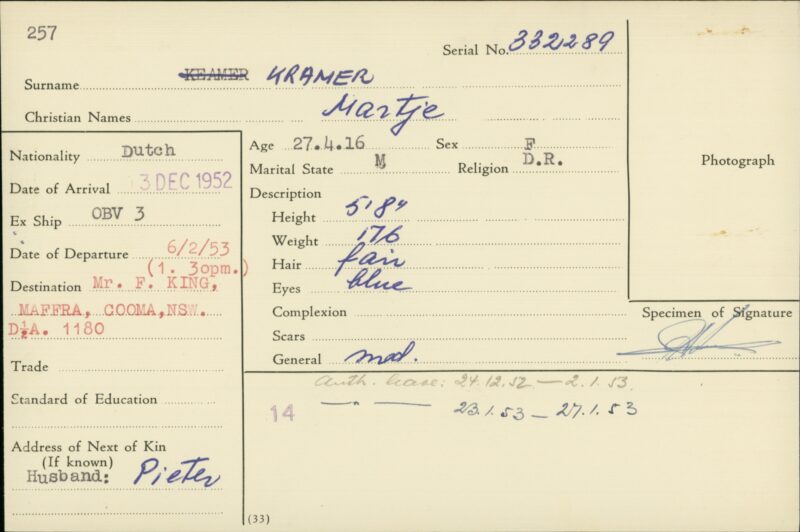 257
Serial No. 332289
Surname KEAMER KRAMER
Christian Names Martje
Nationality Dutch
Date of Arrival 3 DEC 1952
Ex Ship OBV 3
Date of Departure 6/2/53
(1. 3opm.)
Destination Mr. F. KING,
MAFFRA, COOMA,NSW.
D½A. 1180
Trade
Standard of Education
Address of Next of Kin
(If known)
Husband: Pieter
Age 27.4.16 Sex F
Marital State M Religion D.R.
Description
Height 5'8"
Weight 176
Hair fair
Eyes blue
Complexion
Scars
General med.
Photograph
Specimen of Signature
Auth. leave: 24.12.52 — 2.1.53.
14 —"— 23.1.53 — 27.1.53
(33)